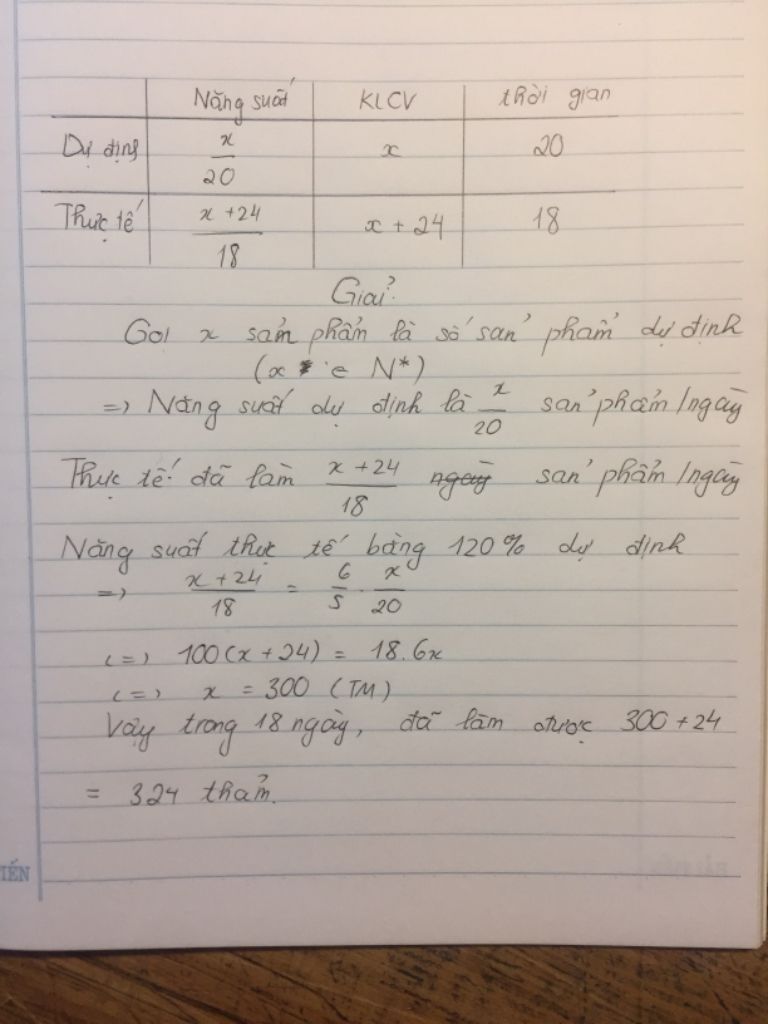 Năng suất KLCV thời gian
Dự định x/20 x 20
Thực tế x + 24/18 x + 24 18
Giải:
Gọi x sản phẩm là số sản phẩm dự định
(x ∈ N*)
=> Năng suất dự định là x/20 sản phẩm/ngày
Thực tế đã làm x + 24/18 ngày sản phẩm/ngày
Năng suất thực tế bằng 120% dự định
=> x + 24/18 = 6/5 . x/20
<=> 100(x + 24) = 18.6x
<=> x = 300 (TM)
Vậy trong 18 ngày, đã làm được 300 + 24
= 324 thảm.
IẾN